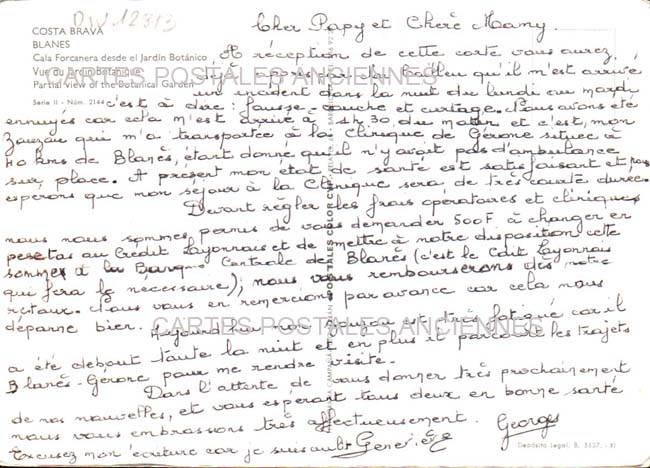 DIV 12813
COSTA BRAVA
BLANES
Cala Forcanera desde el Jardín Botánico
Vue du Jardin Botanique
Partial view of the Botanical Garden
Serie II - Núm. 2144
Cher Papy et Chère Mamy.
A réception de cette carte vous aurez
déjà appris par du Bailleu qu'il m'est arrivé
un incident dans la nuit du lundi au mardi
c'est à dire : fausse-couche et curtage. Nous avons été
ennuyés car cela m'est arrivé à 1h30 du matin et c'est, mon
Zouzou qui m'a transportée à la Clinique de Gérone située à
40 kms de Blanès, étant donné qu'il n'y avait pas d'ambulance
sur place. A présent mon état de santé est satisfaisant et nous
esperons que mon séjour à la Clinique sera de très courte durée.
Devant règler les frais opératoires et cliniques
nous nous sommes permis de vous demander 500F à changer en
pesetas au Crédit Lyonnais et de mettre à notre disposition cette
somme à la Banque Centrale de Blanès (c'est le Cdit Lyonnais
qui fera le nécessaire), nous vous rembourserons dès notre
retour. Nous vous en remercions par avance car cela nous
dépanne bien. Aujourd'hui mon Zouzou est très fatigué car il
a été debout toute la nuit et en plus il parcoure les trajets
Blanès-Gérone pour me rendre visite.
Dans l'attente de vous donner très prochainement
de nos nouvelles, et vous espérant tous deux en bonne santé
nous vous embrassons très affectueusement.
Georges
Excusez mon écriture car je suis au lit Geneviève
Depósito Legal, B. 3537 - XI
CARTES POSTALES ANCIENNES
CARTES POSTALES ANCIENNES